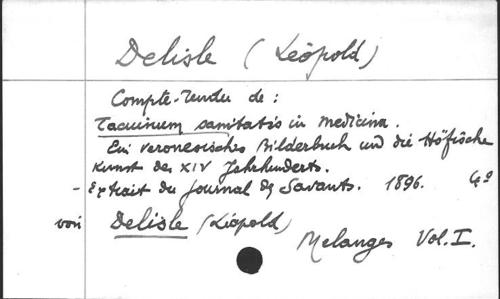 Delisle (Léopold)
Compte-rendu de :
Tacuinum sanitatis in medicina.
Ein veronesisches Bilderbuch und die Höfische
Kunst des XIV Jahrhunderts.
- Extrait du Journal des Savants. 1896. 4º
voir Delisle (Léopold)
Melanges Vol. I.